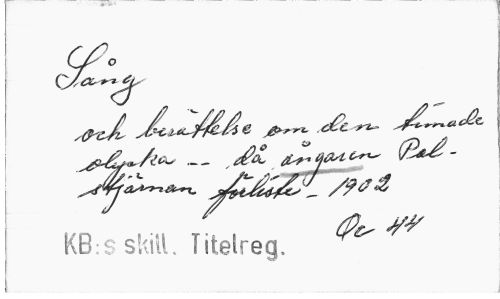 Sång
och berättelse om den timade
olycka -- då ångaren Pol-
stjärnan förliste - 1902
Qc 44
KB:s skill. Titelreg.